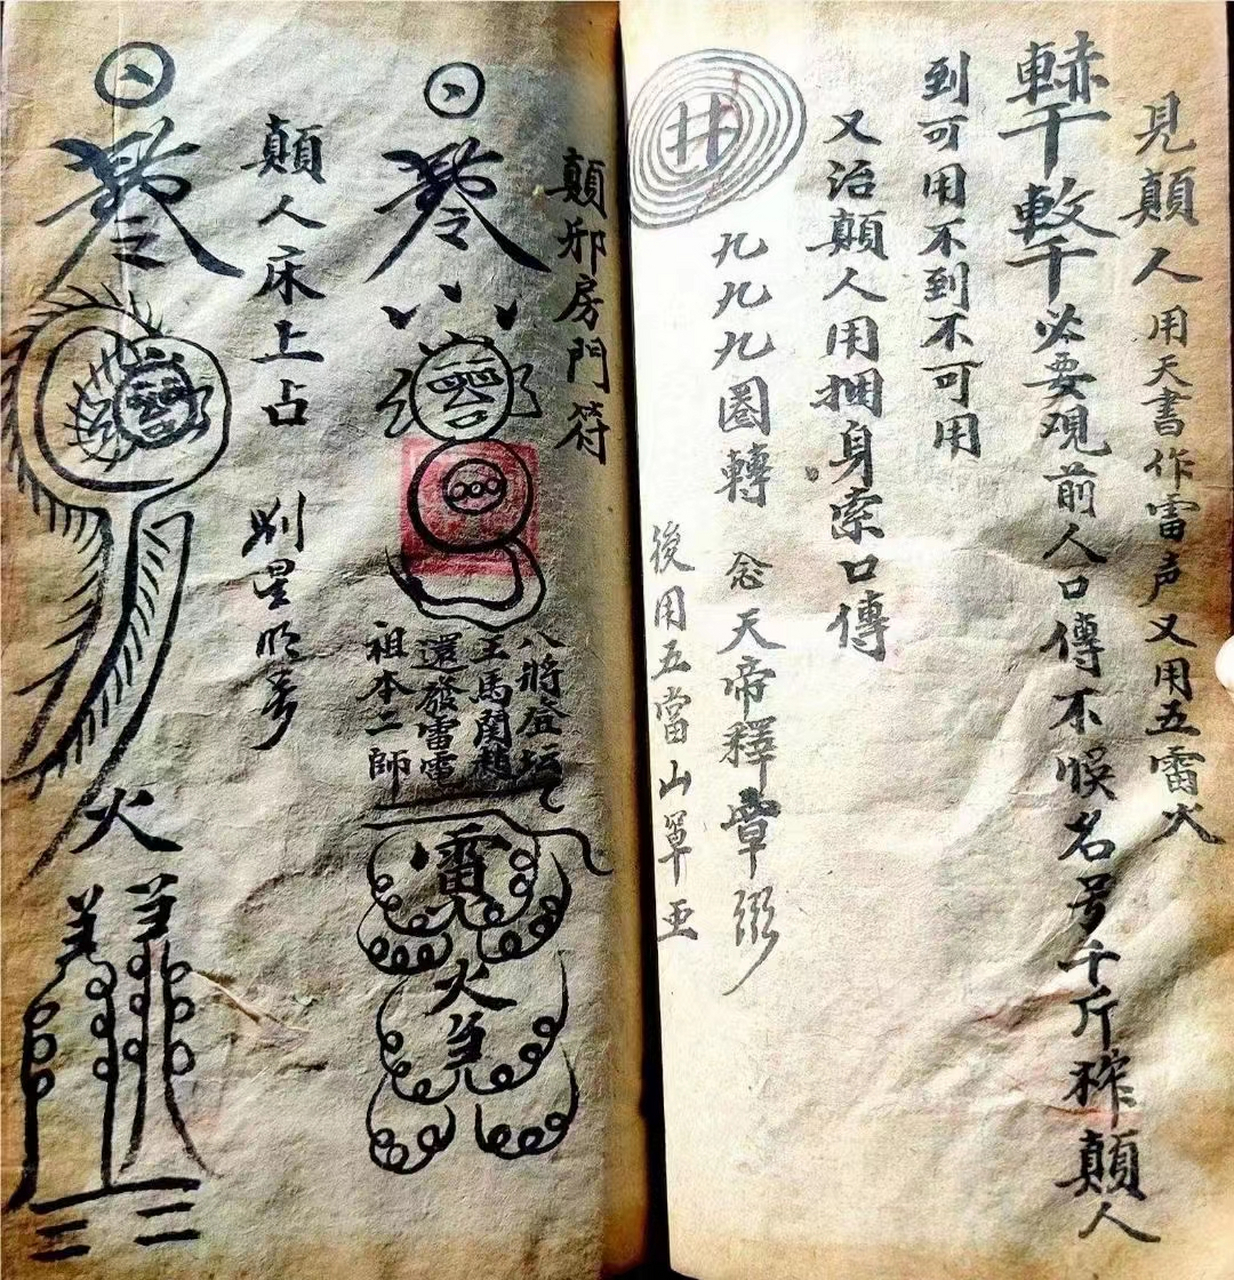 見顛人用天書作雷声又用五雷火
必要观前人口傳不悞名号千斤榨顛人
到可用不到不可用
又治顛人用捆身索口傳
井
九九九圈轉 念天帝釋章
後用五當山罩
顛邪房門符
八將登坛
王馬関趙
還發雷電
祖本二師
雷
火
顛人床上占
火